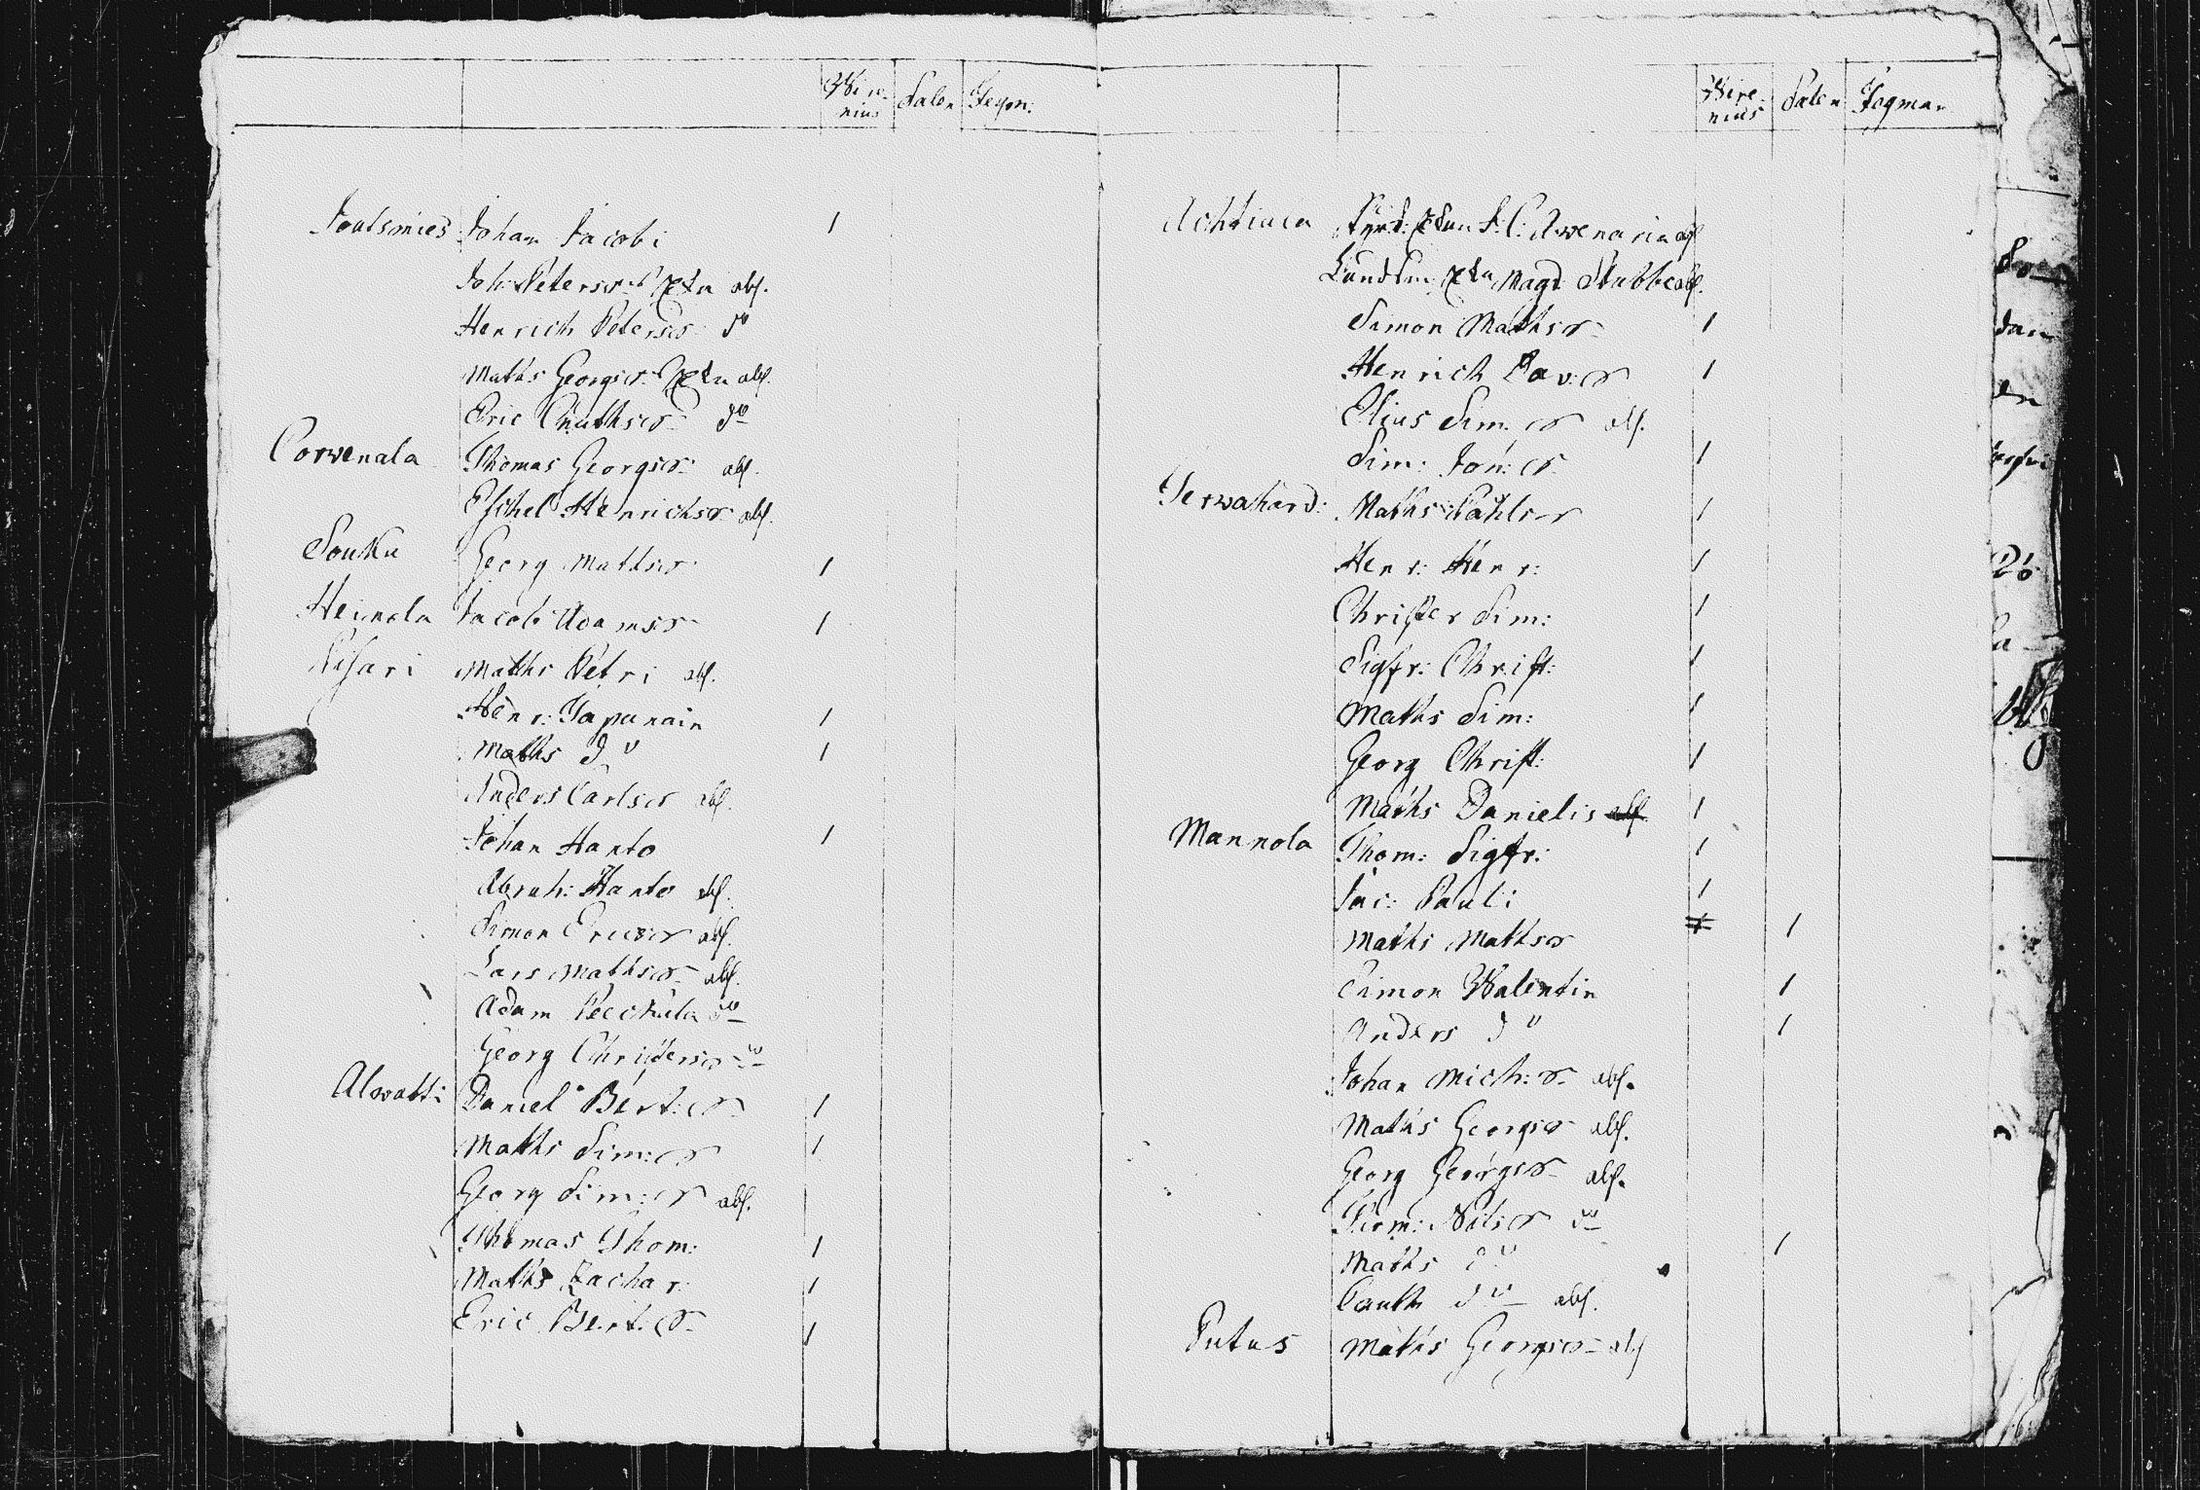 Wire-
nius Salen Tegm:
Joutsmies Johan Jacobi 1
Joh: Peterss. abs.
Henrich Peterss. do
Maths Georgss. abs.
Eric Cnuthss. do
Corwenala Thomas Georgss. abs.
Eschel Henrichss. abs.
Souku Georg Mathss. 1
Heinola Jacob Adamss. 1
Kisari Maths Petri abs.
Henr: Japunain 1
Maths do 1
Anders Carlss. abs.
Johan Hanto 1
Abrah: Hanto abs.
Simon Ericss. abs.
Lars Mathss. abs.
Adam do
Georg Christerss. do
Alwatti Daniel Bert: s. 1
Maths Sim: s. 1
Georg Sim: s. abs.
Thomas Thom: 1
Maths Zachar: 1
Eric Bert: s. 1
Wire-
nius Salen Tegman
Achtiala J: C: Awenaria abs.
Magd Stubbe abs.
Simon Mathss. 1
Henrich Pav: s. 1
Elias Sim: s. abs.
Sim: Jon: s. 1
Jerwahard: Maths Påhlss. 1
Henr: Henr: 1
Christer Sim: 1
Sigfr: Christ: 1
Maths Sim: 1
Georg Christ: 1
Maths Danielis abs. 1
Mannola Thom: Sigfr: 1
Jac: Pauli 1
Maths Mathss. 1 1
Simon Walentin 1
Anders do 1
Johan Mich: s. abs.
Maths Georgss. abs.
Georg Georgss. abs.
Thom: Nilss. do
Maths do 1
Cnuth do abs.
Putus Maths Georgss. abs